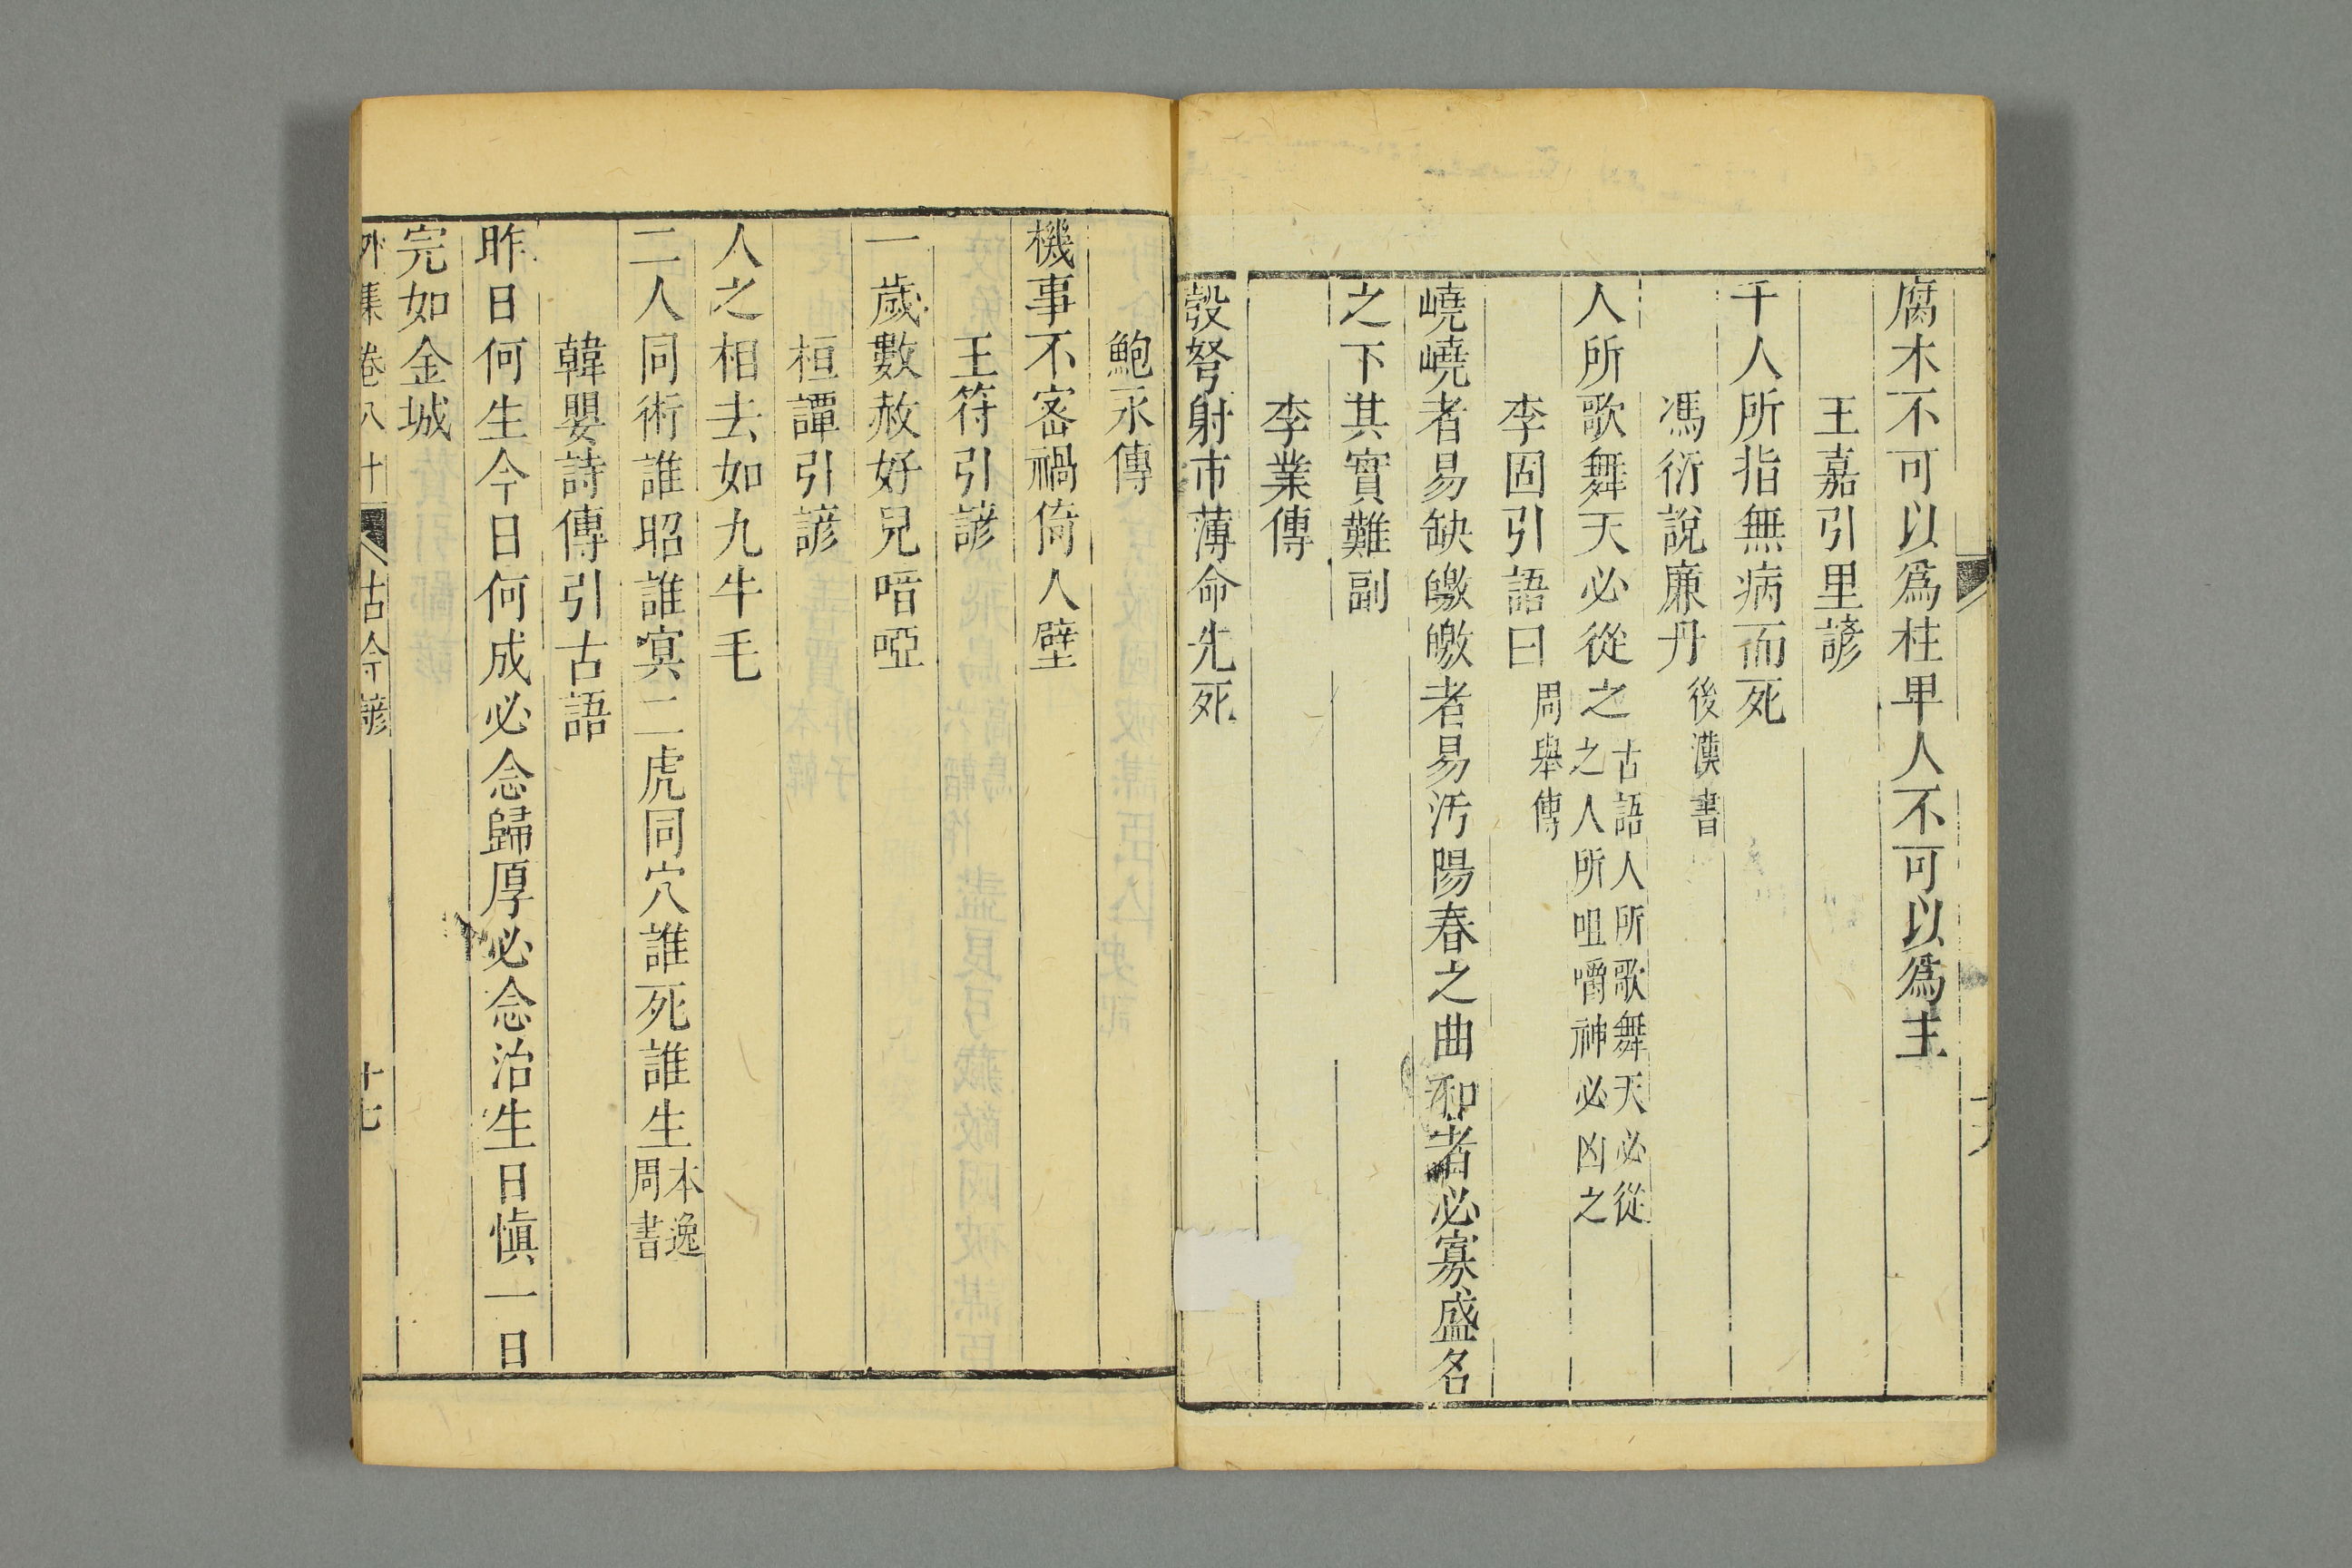 腐木不可以爲柱卑人不可以爲主
王嘉引里諺
千人所指無病而死
馮衍說廉丹後漢書
人所歌舞天必從之古語人所歌舞天必從之人所咀嚼神必凶之
李固引語曰周舉傳
嶢嶢者易缺皦皦者易汚陽春之曲和者必寡盛名
之下其實難副
李業傳
彀弩射市薄命先死
鮑永傳
機事不密禍倚人壁
王符引諺
一歲數赦好兒喑啞
桓譚引諺
人之相去如九牛毛
二人同術誰昭誰冥二虎同穴誰死誰生本逸周書
韓嬰詩傳引古語
昨日何生今日何成必念歸厚必念治生日愼一日
完如金城
外集卷八十 古今諺 十七